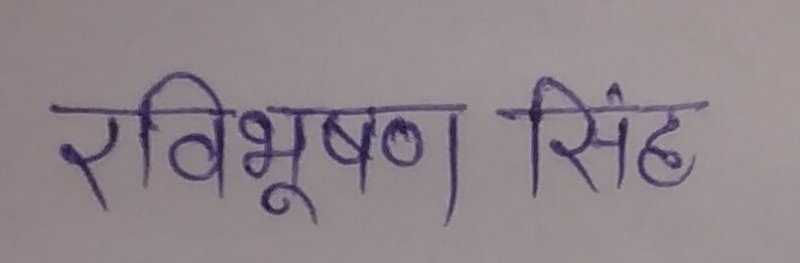 रविभूषण सिंह